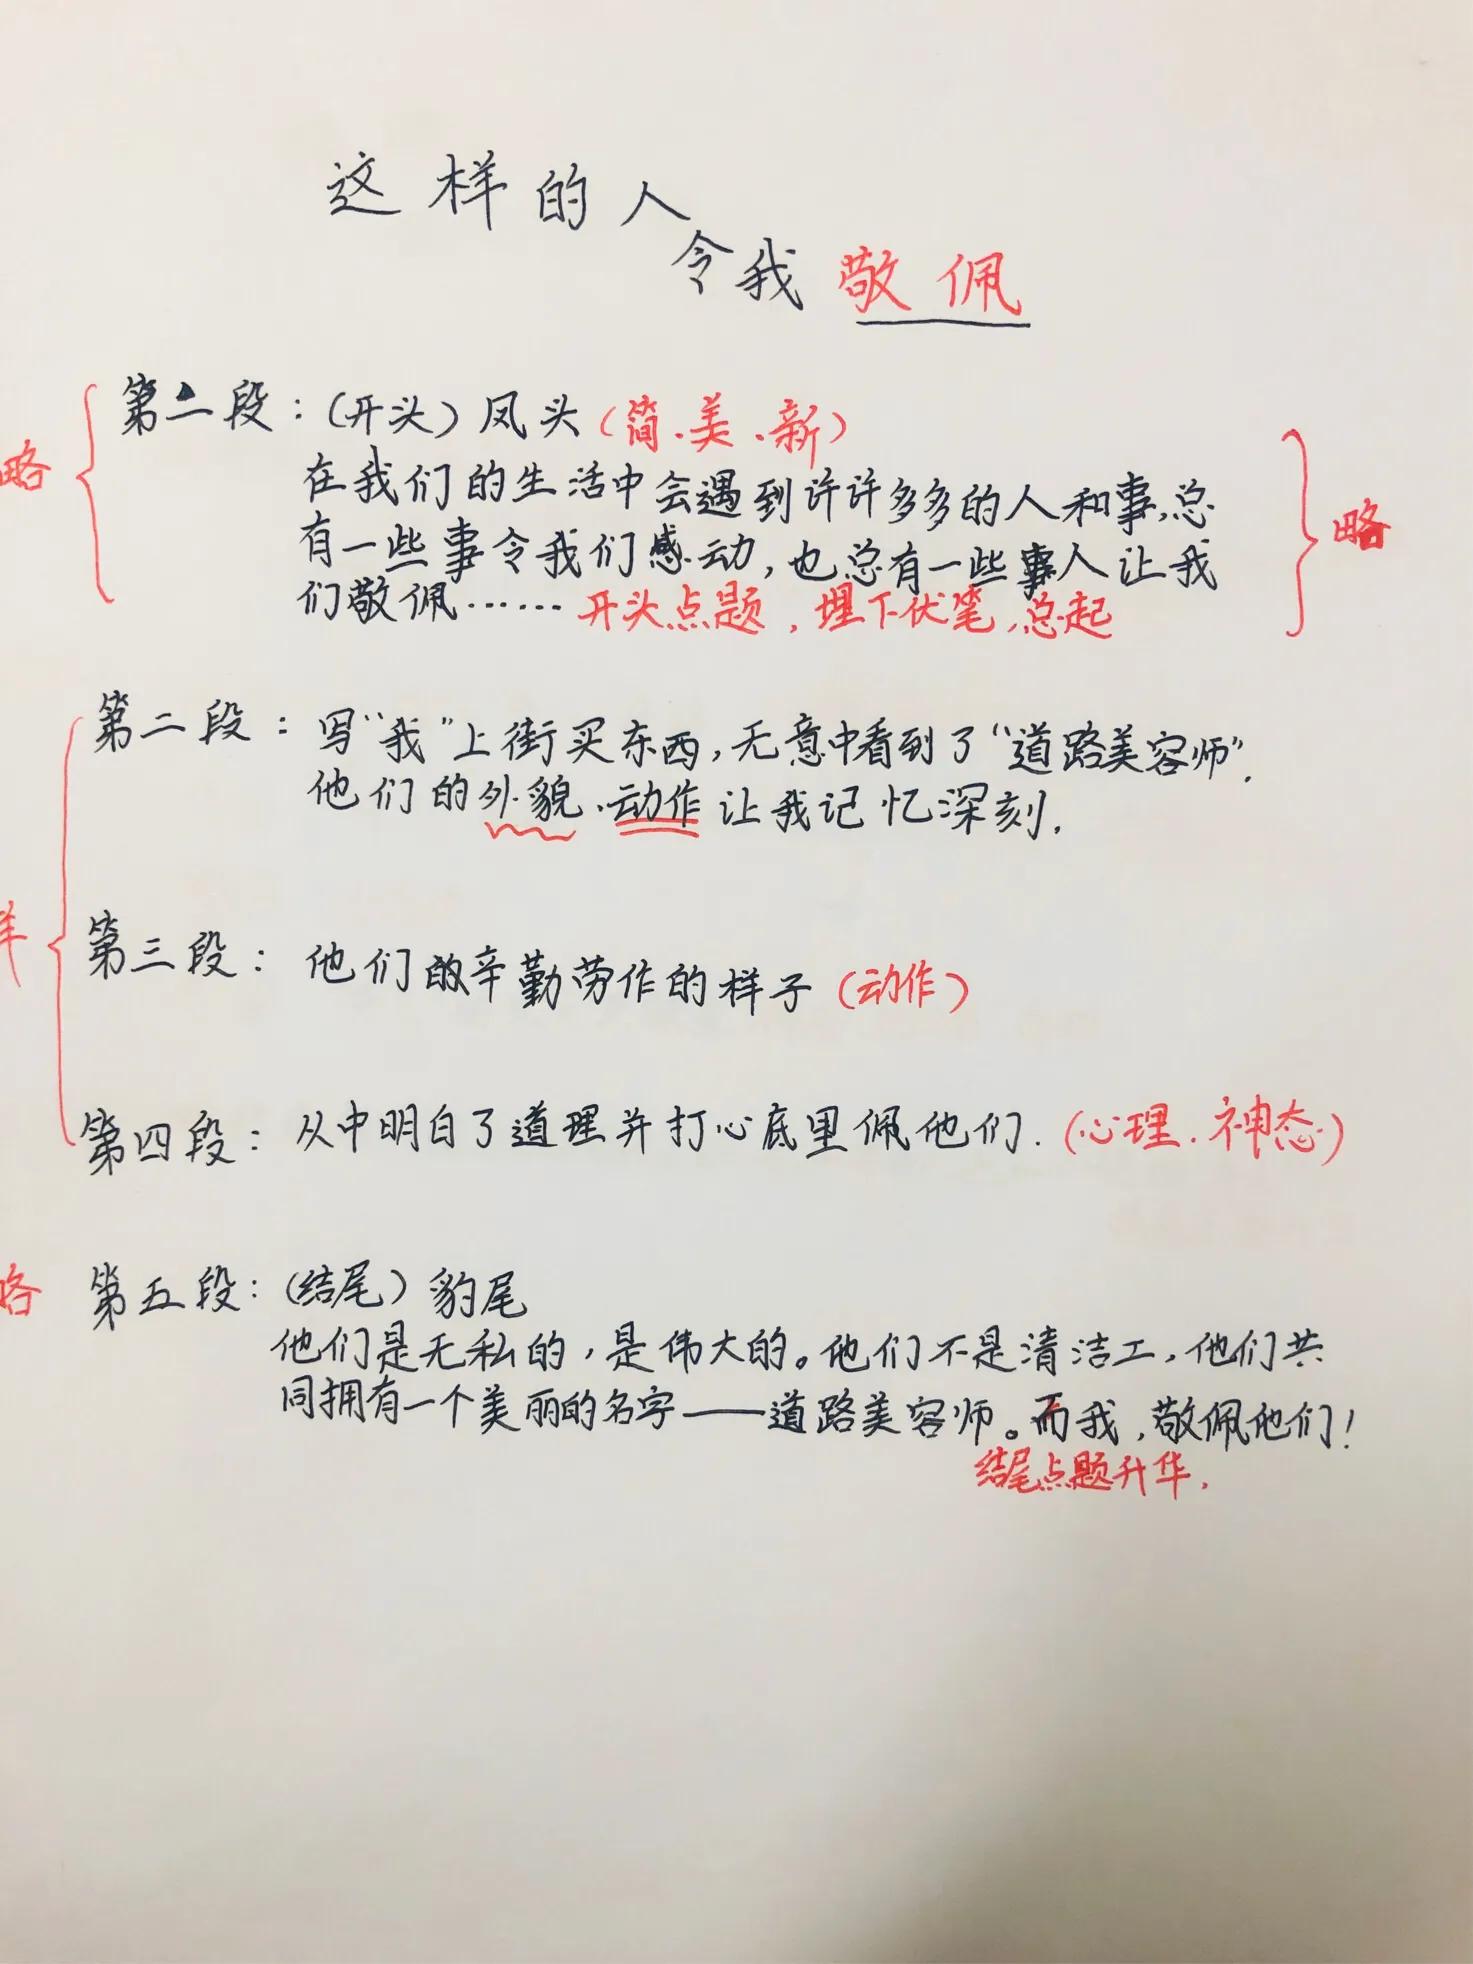 这样的人
令我敬佩
第二段：(开头) 凤头 (简.美.新)
略
在我们的生活中会遇到许许多多的人和事,总
有一些事令我们感动，也总有一些人让我
略
们敬佩…… 开头点题，埋下伏笔,总起
第二段：写“我”上街买东西,无意中看到了“道路美容师”.
他们的外貌.动作让我记忆深刻.
第三段：他们的辛勤劳作的样子 (动作)
第四段：从中明白了道理并打心底里佩他们. (心理.神态)
略 第五段：(结尾) 豹尾
他们是无私的，是伟大的。他们不是清洁工，他们共
同拥有一个美丽的名字——道路美容师。而我，敬佩他们！
结尾点题升华.